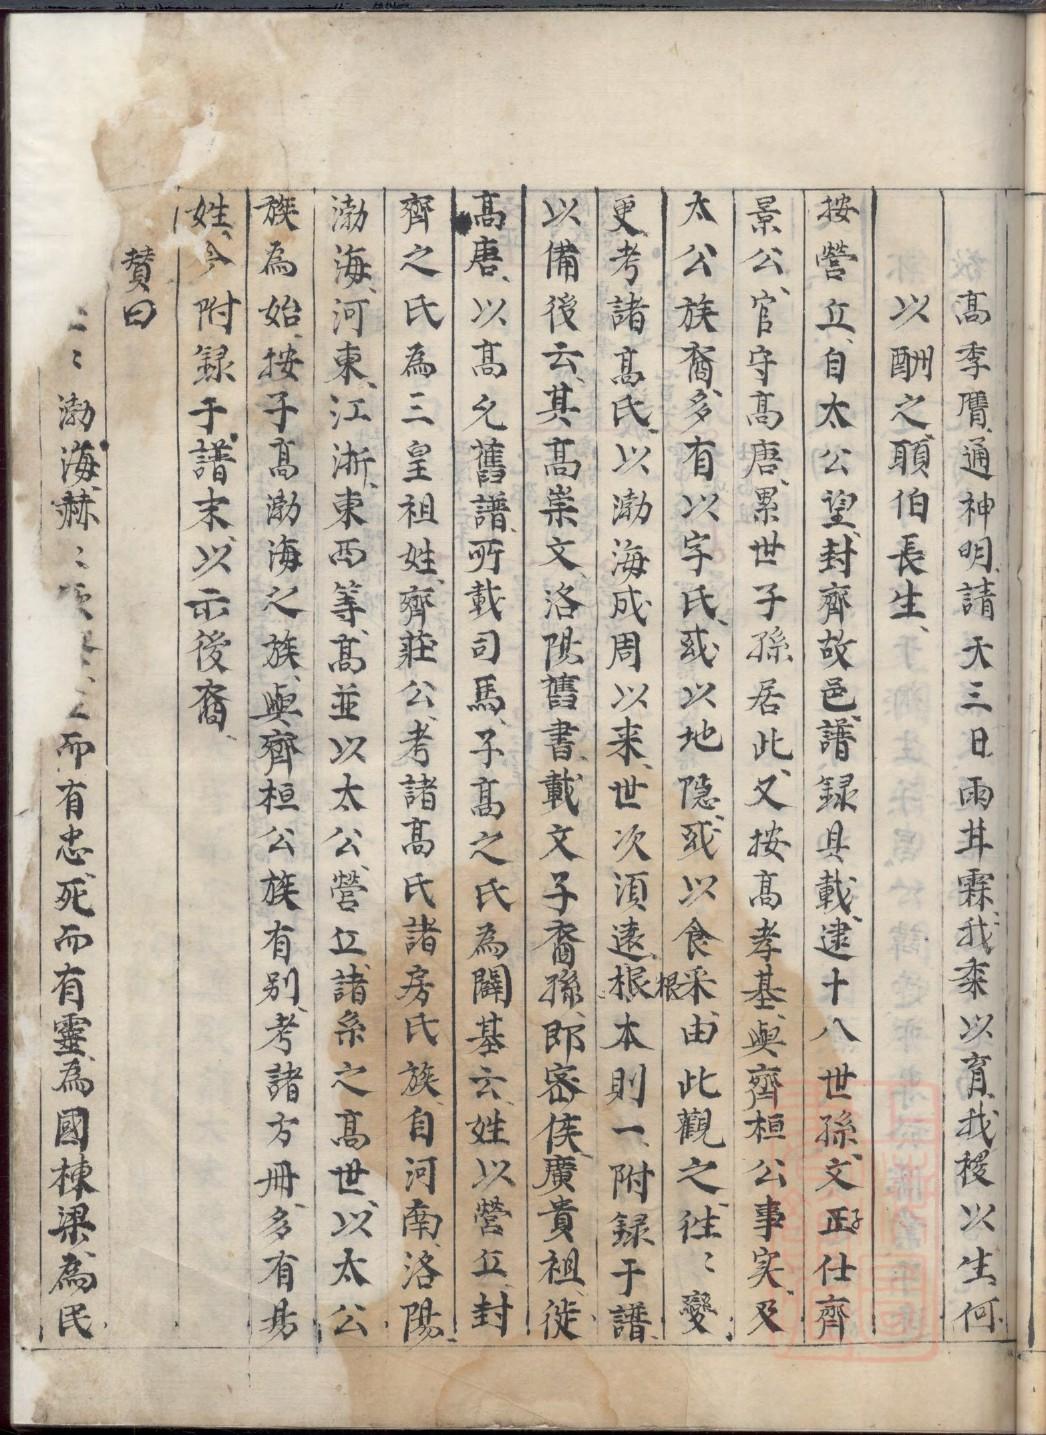 高季膺通神明請天三日雨其霖我黍以育我稷以生何
以酬之願伯長生
按營丘自太公望封齊故邑譜録具載逮十八世孫文子正仕齊
景公官守高唐累世子孫居此又按高孝基與齊桓公事実及
太公族裔多有以字氏或以地隐或以食采由此觀之徃〻變
更考諸高氏以渤海成周以来世次湏遠根本則一附録于譜
以備後云其高崇文洛陽舊書載文子裔孫即密侯廣貴祖徙
高唐以高允舊譜所載司馬子高之氏為闢基云姓以營丘封
齊之氏為三皇祖姓齊莊公考諸高氏諸房氏族自河南洛陽
渤海河東江浙東西等高並以太公營丘諸系之高世以太公
族為始按子高渤海之族與齊桓公族有别考諸方冊多有易
姓今附録于譜末以示後裔
賛曰
〻渤海赫〻而有忠死而有靈為國棟梁為民